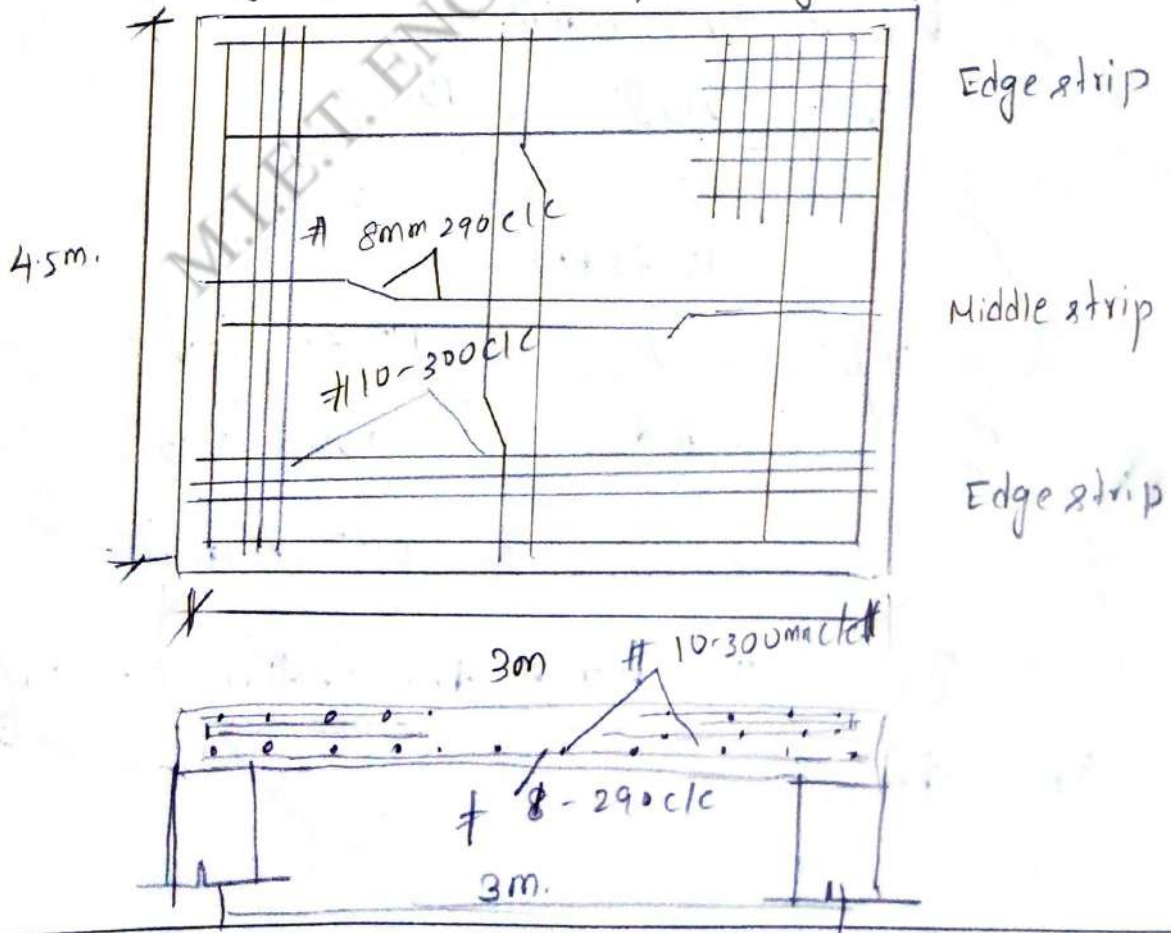 M.I.E.T. ENG
Edge strip
4.5m.
# 8mm 290 c/c
Middle strip
#10-300 c/c
Edge strip
3m
# 10-300mm c/c
# 8 - 290 c/c
3m.